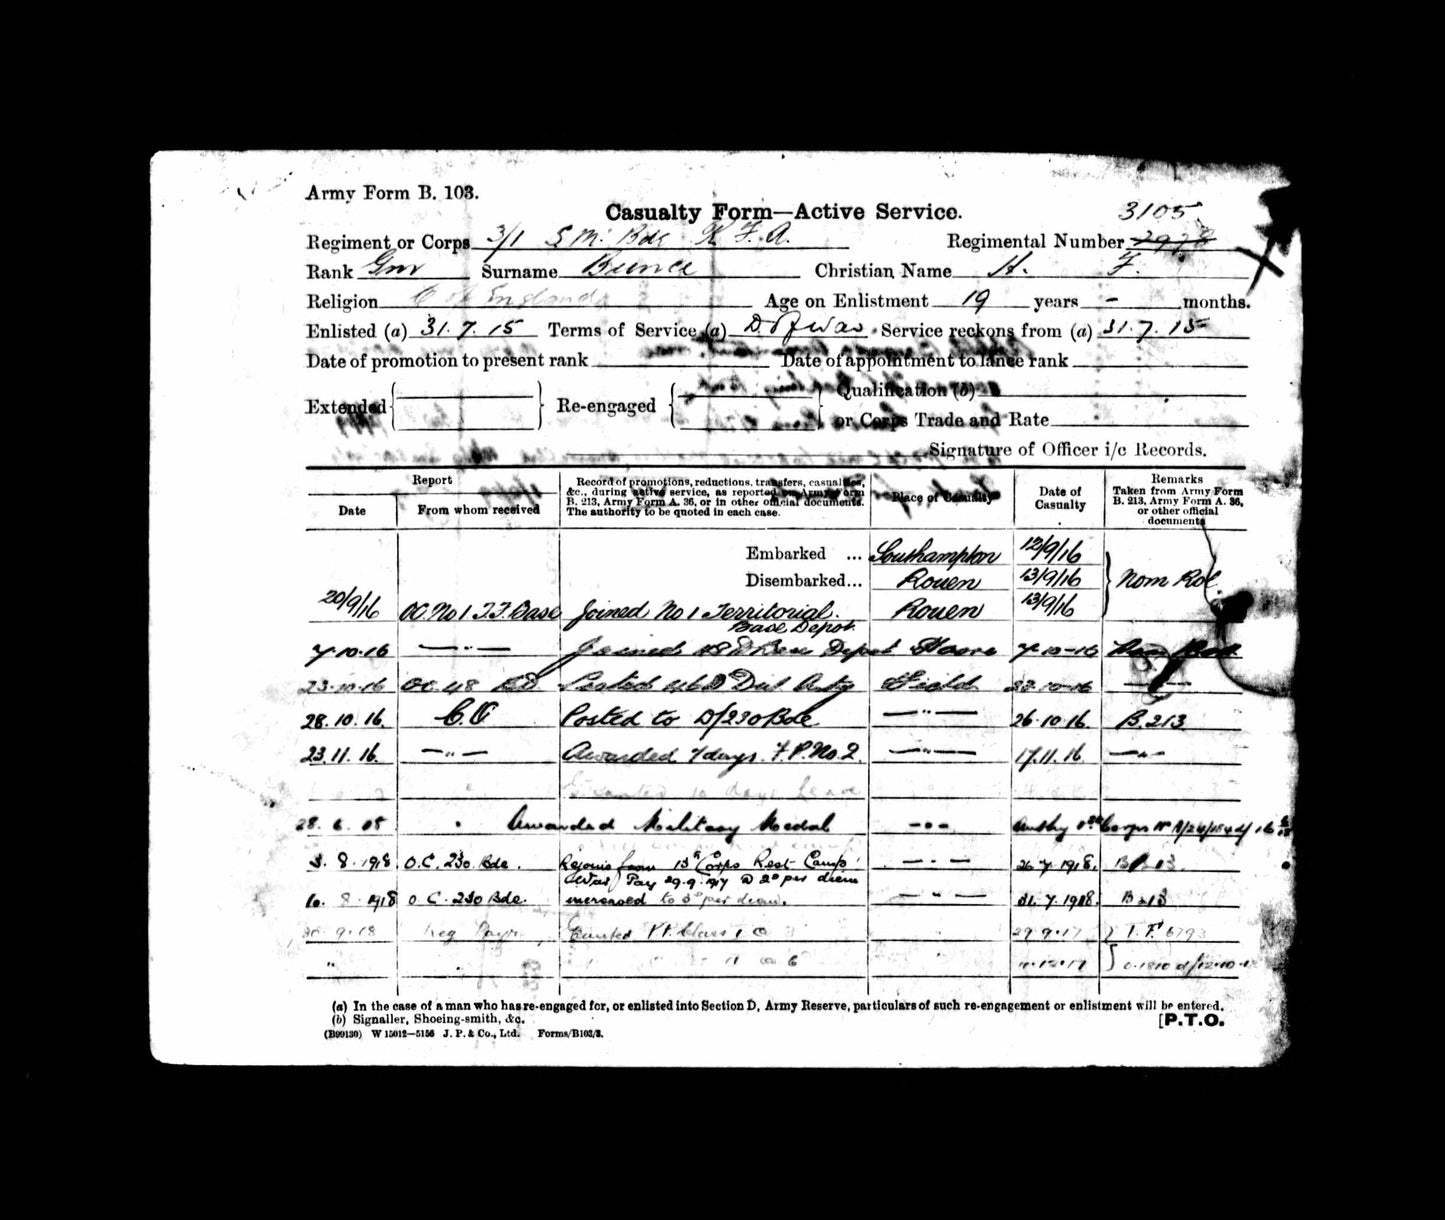 Army Form B. 103.
Casualty Form—Active Service.
3105
Regiment or Corps 3/1 S.M. Bde R.F.A. Regimental Number
Rank Gnr Surname Bunce Christian Name H. F.
Religion C of England Age on Enlistment 19 years - months.
Enlisted (a) 31.7.15 Terms of Service (a) D. of War Service reckons from (a) 31.7.15
Date of promotion to present rank Date of appointment to lance rank
Extended Re-engaged Qualification (b)
or Corps Trade and Rate
Signature of Officer i/c Records.
Report
Date From whom received
Record of promotions, reductions, transfers, casualties,
&c., during active service, as reported on Army Form
B. 213, Army Form A. 36, or in other official documents.
The authority to be quoted in each case.
Place of Casualty
Date of
Casualty
Remarks
Taken from Army Form
B. 213, Army Form A. 36,
or other official
documents
Embarked ... Southampton 12/9/16
Disembarked... Rouen 13/9/16 Nom Rol
20/9/16 OC No 1 T.F. Base Joined No 1 Territorial Rouen 13/9/16
Base Depot
7.10.16 —"— Joined Base Depot Havre 7-10-16
23.10.16 OC 48 Posted Div Arty Field 23.10.16 —"—
28.10.16. Posted to D/230 Bde —"— 26.10.16. B.213
23.11.16. —"— Awarded 7 days F.P. No. 2. —"— 17.11.16 —"—
Granted 10 days leave
28.6.18 Awarded Military Medal —"—
3.8.1918 O.C. 230 Bde. Rejoins from 13th Corps Rest Camp —"— 26.7.1918. B213.
War Pay 29.9.1917 @ 2d per diem
10.8.1918 O.C. 230 Bde. increased to 3d per diem. —"— 31.7.1918. B213
30.9.18 Reg Paym Granted P.P. Class 1 @ 3 29.9.17 T.F. 6793
" " 11 @ 6
(a) In the case of a man who has re-engaged for, or enlisted into Section D, Army Reserve, particulars of such re-engagement or enlistment will be entered.
(b) Signaller, Shoeing-smith, &c.
[P.T.O.
(B99130) W 15012—5156 J. P. & Co., Ltd. Forms/B103/3.